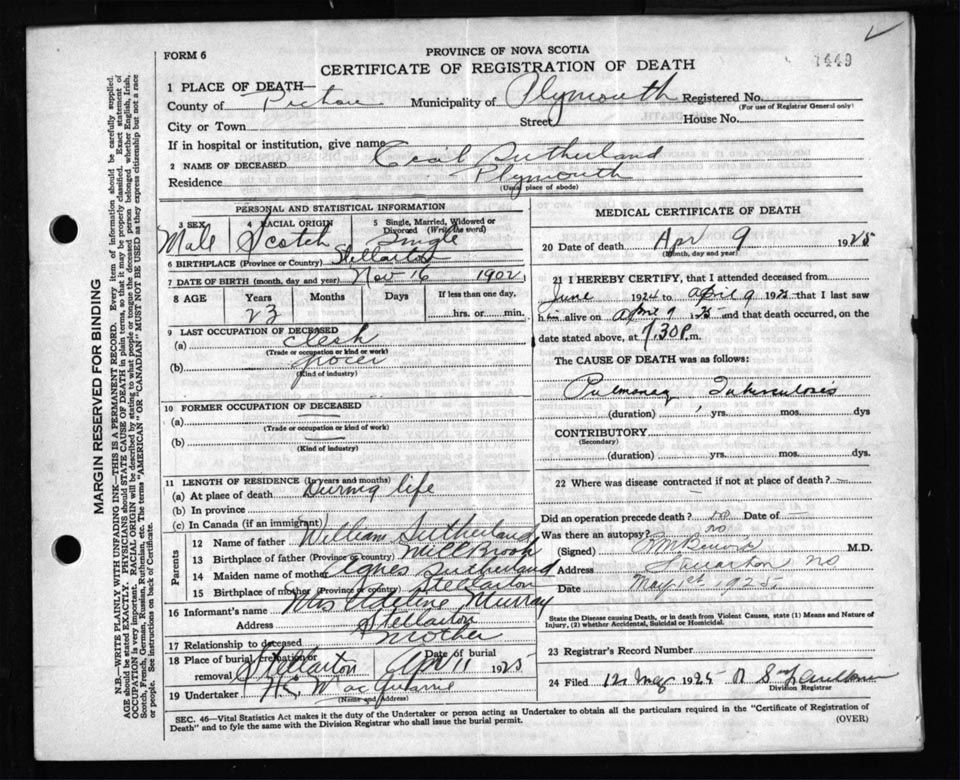 FORM 6
PROVINCE OF NOVA SCOTIA
CERTIFICATE OF REGISTRATION OF DEATH
1449
1 PLACE OF DEATH—
County of Pictou Municipality of Plymouth Registered No.
(For use of Registrar General only)
City or Town Street House No.
If in hospital or institution, give name
2 NAME OF DECEASED Cecil Sutherland
Residence Plymouth
(Usual place of abode)
PERSONAL AND STATISTICAL INFORMATION
3 SEX 4 RACIAL ORIGIN 5 Single, Married, Widowed or Divorced (Write the word)
Male Scotch Single
6 BIRTHPLACE (Province or Country) Stellarton
7 DATE OF BIRTH (month, day and year) Nov 16 1902
8 AGE Years Months Days If less than one day,
23 hrs. or min.
9 LAST OCCUPATION OF DECEASED
(a) Clerk
(Trade or occupation or kind or work)
(b) Grocer
(Kind of industry)
10 FORMER OCCUPATION OF DECEASED
(a) —
(Trade or occupation or kind of work)
(b) —
(Kind of industry)
11 LENGTH OF RESIDENCE (In years and months)
(a) At place of death During life
(b) In province
(c) In Canada (if an immigrant)
Parents
12 Name of father William Sutherland
13 Birthplace of father (Province or country) Millbrook
14 Maiden name of mother Agnes Sutherland
15 Birthplace of mother (Province or country) Stellarton
16 Informant's name Mrs Murray
Address Stellarton
17 Relationship to deceased Mother
18 Place of burial, cremation or removal Date of burial
Stellarton Apr 11 1925
19 Undertaker
(Name and address)
MEDICAL CERTIFICATE OF DEATH
20 Date of death Apr 9 1925
(Month, day and year)
21 I HEREBY CERTIFY, that I attended deceased from
June 1924 to April 9 1925 that I last saw
him alive on April 9 1925 and that death occurred, on
date stated above, at 7.30 P. m.
The CAUSE OF DEATH was as follows:
Pulmonary Tuberculosis
(duration) yrs. mos. dys
CONTRIBUTORY
(Secondary)
(duration) yrs. mos. dys.
22 Where was disease contracted if not at place of death? —
Did an operation precede death? no Date of —
Was there an autopsy? no
(Signed) M.D.
Address
Date May 1st 1925
State the Disease causing Death, or in death from Violent Causes, state (1) Means and Nature of
Injury, (2) whether Accidental, Suicidal or Homicidal.
23 Registrar's Record Number
24 Filed 12 May 1925
Division Registrar
SEC. 46—Vital Statistics Act makes it the duty of the Undertaker or person acting as Undertaker to obtain all the particulars required in the "Certificate of Registration of
Death" and to fyle the same with the Division Registrar who shall issue the burial permit. (OVER)
MARGIN RESERVED FOR BINDING
N.B—WRITE PLAINLY WITH UNFADING INK—THIS IS A PERMANENT RECORD. Every item of information should be carefully supplied.
AGE should be stated EXACTLY. PHYSICIANS should STATE CAUSE OF DEATH in plain terms, so that it may be properly classified. Exact statement of
OCCUPATION is very important. RACIAL ORIGIN will be described by stating to what people or tongue the deceased person belonged whether English, Irish,
Scotch, French, German, Russian, Ruthenian, etc. The terms "AMERICAN" OR "CANADIAN" MUST NOT BE USED as they express citizenship but not a race
or people. See instructions on back of Certificate.